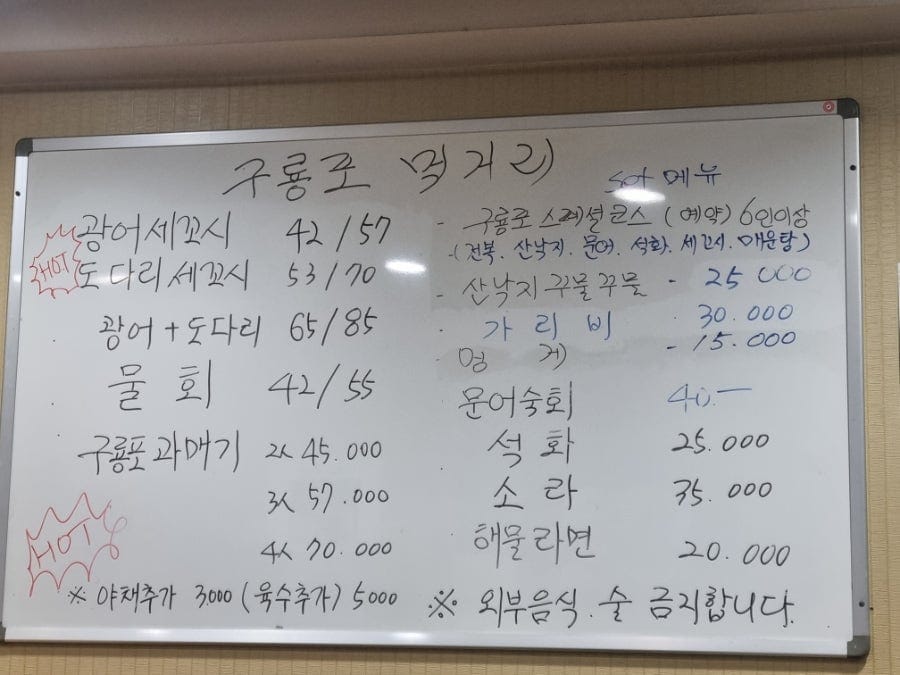 구룡포 먹거리
HOT
광어세꼬시 42/57
도다리세꼬시 53/70
광어+도다리 65/85
물회 42/55
구룡포과매기 2人 45.000
3人 57.000
4人 70.000
HOT
※ 야채추가 3.000 (육수추가) 5000
Set 메뉴
- 구룡포 스페셜코스 (예약) 6인이상
- (전복. 산낙지. 문어. 석화. 세꼬시. 매운탕)
- 산낙지 꾸물꾸물 - 25000
· 가리비 30.000
· 멍게 - 15.000
문어숙회 40.-
석화 25.000
소라 35.000
해물라면 20.000
※ 외부음식. 술 금지합니다.